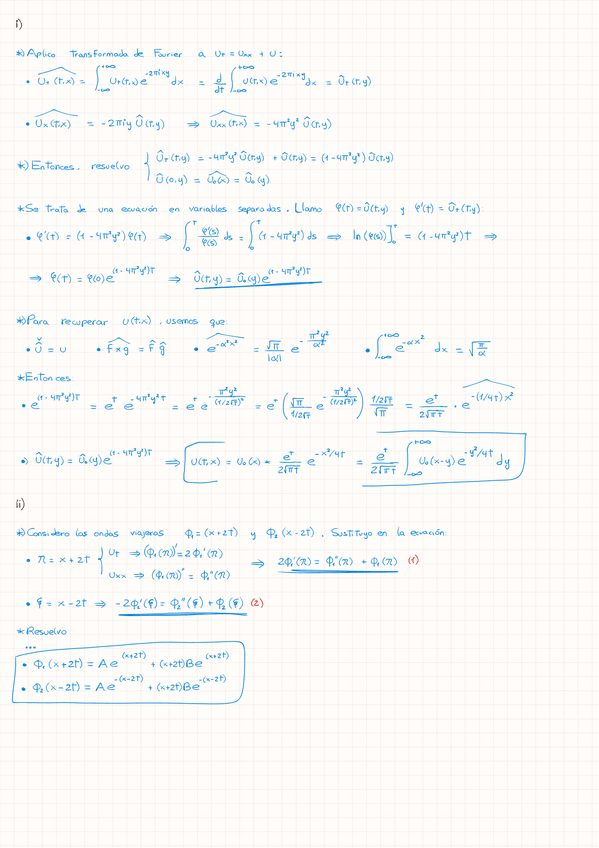 i)
*) Aplico Transformada de Fourier a Ut = Uxx + U:
• \widehat{Ut(t,x)} = ∫_{-∞}^{+∞} Ut(t,x) e^{-2πixy} dx = d/dt ∫_{-∞}^{+∞} U(t,x) e^{-2πixy} dx = Ût(t,y)
• \widehat{Ux(t,x)} = -2πiy Û(t,y) ⇒ \widehat{Uxx(t,x)} = -4π²y² Û(t,y)
*) Entonces, resuelvo { Ût(t,y) = -4π²y² Û(t,y) + Û(t,y) = (1-4π²y²) Û(t,y)
Û(0,y) = \widehat{U₀(x)} = Û₀(y)
*) Se trata de una ecuación en variables separadas. Llamo φ(t) = Û(t,y) y φ'(t) = Ût(t,y):
• φ'(t) = (1-4π²y²) φ(t) ⇒ ∫_0^t φ'(s)/φ(s) ds = ∫_0^t (1-4π²y²) ds ⇒ ln(φ(s))]_0^t = (1-4π²y²)t ⇒
⇒ φ(t) = φ(0) e^{(1-4π²y²)t} ⇒ Û(t,y) = Û₀(y) e^{(1-4π²y²)t}
*) Para recuperar U(t,x), usemos que:
• \check{Û} = U • \widehat{f*g} = f̂ ĝ • \widehat{e^{-α²x²}} = √π/|α| e^{-π²y²/α²} • ∫_{-∞}^{+∞} e^{-αx²} dx = √(π/α)
* Entonces:
• e^{(1-4π²y²)t} = e^t e^{-4π²y²t} = e^t e^{-π²y²/(1/2√t)²} = e^t (√π/(1/2√t) e^{-π²y²/(1/2√t)²}) (1/2√t)/√π = e^t/(2√πt) · \widehat{e^{-(1/4t)x²}}
•) Û(t,y) = Û₀(y) e^{(1-4π²y²)t} ⇒ U(t,x) = U₀(x) * e^t/(2√πt) e^{-x²/4t} = e^t/(2√πt) ∫_{-∞}^{+∞} U₀(x-y) e^{-y²/4t} dy
ii)
*) Considero las ondas viajeras Φ₁ = (x+2t) y Φ₂ (x-2t). Sustituyo en la ecuación
• η = x+2t { Ut ⇒ (Φ₁(η))' = 2Φ₁'(η)
Uxx ⇒ (Φ₁(η))'' = Φ₁''(η) ⇒ 2Φ₁'(η) = Φ₁''(η) + Φ₁(η) (1)
• ξ = x-2t ⇒ -2Φ₂'(ξ) = Φ₂''(ξ) + Φ₂(ξ) (2)
* Resuelvo:
...
• Φ₁(x+2t) = A e^{(x+2t)} + (x+2t) B e^{(x+2t)}
• Φ₂(x-2t) = A e^{-(x-2t)} + (x+2t) B e^{-(x-2t)}